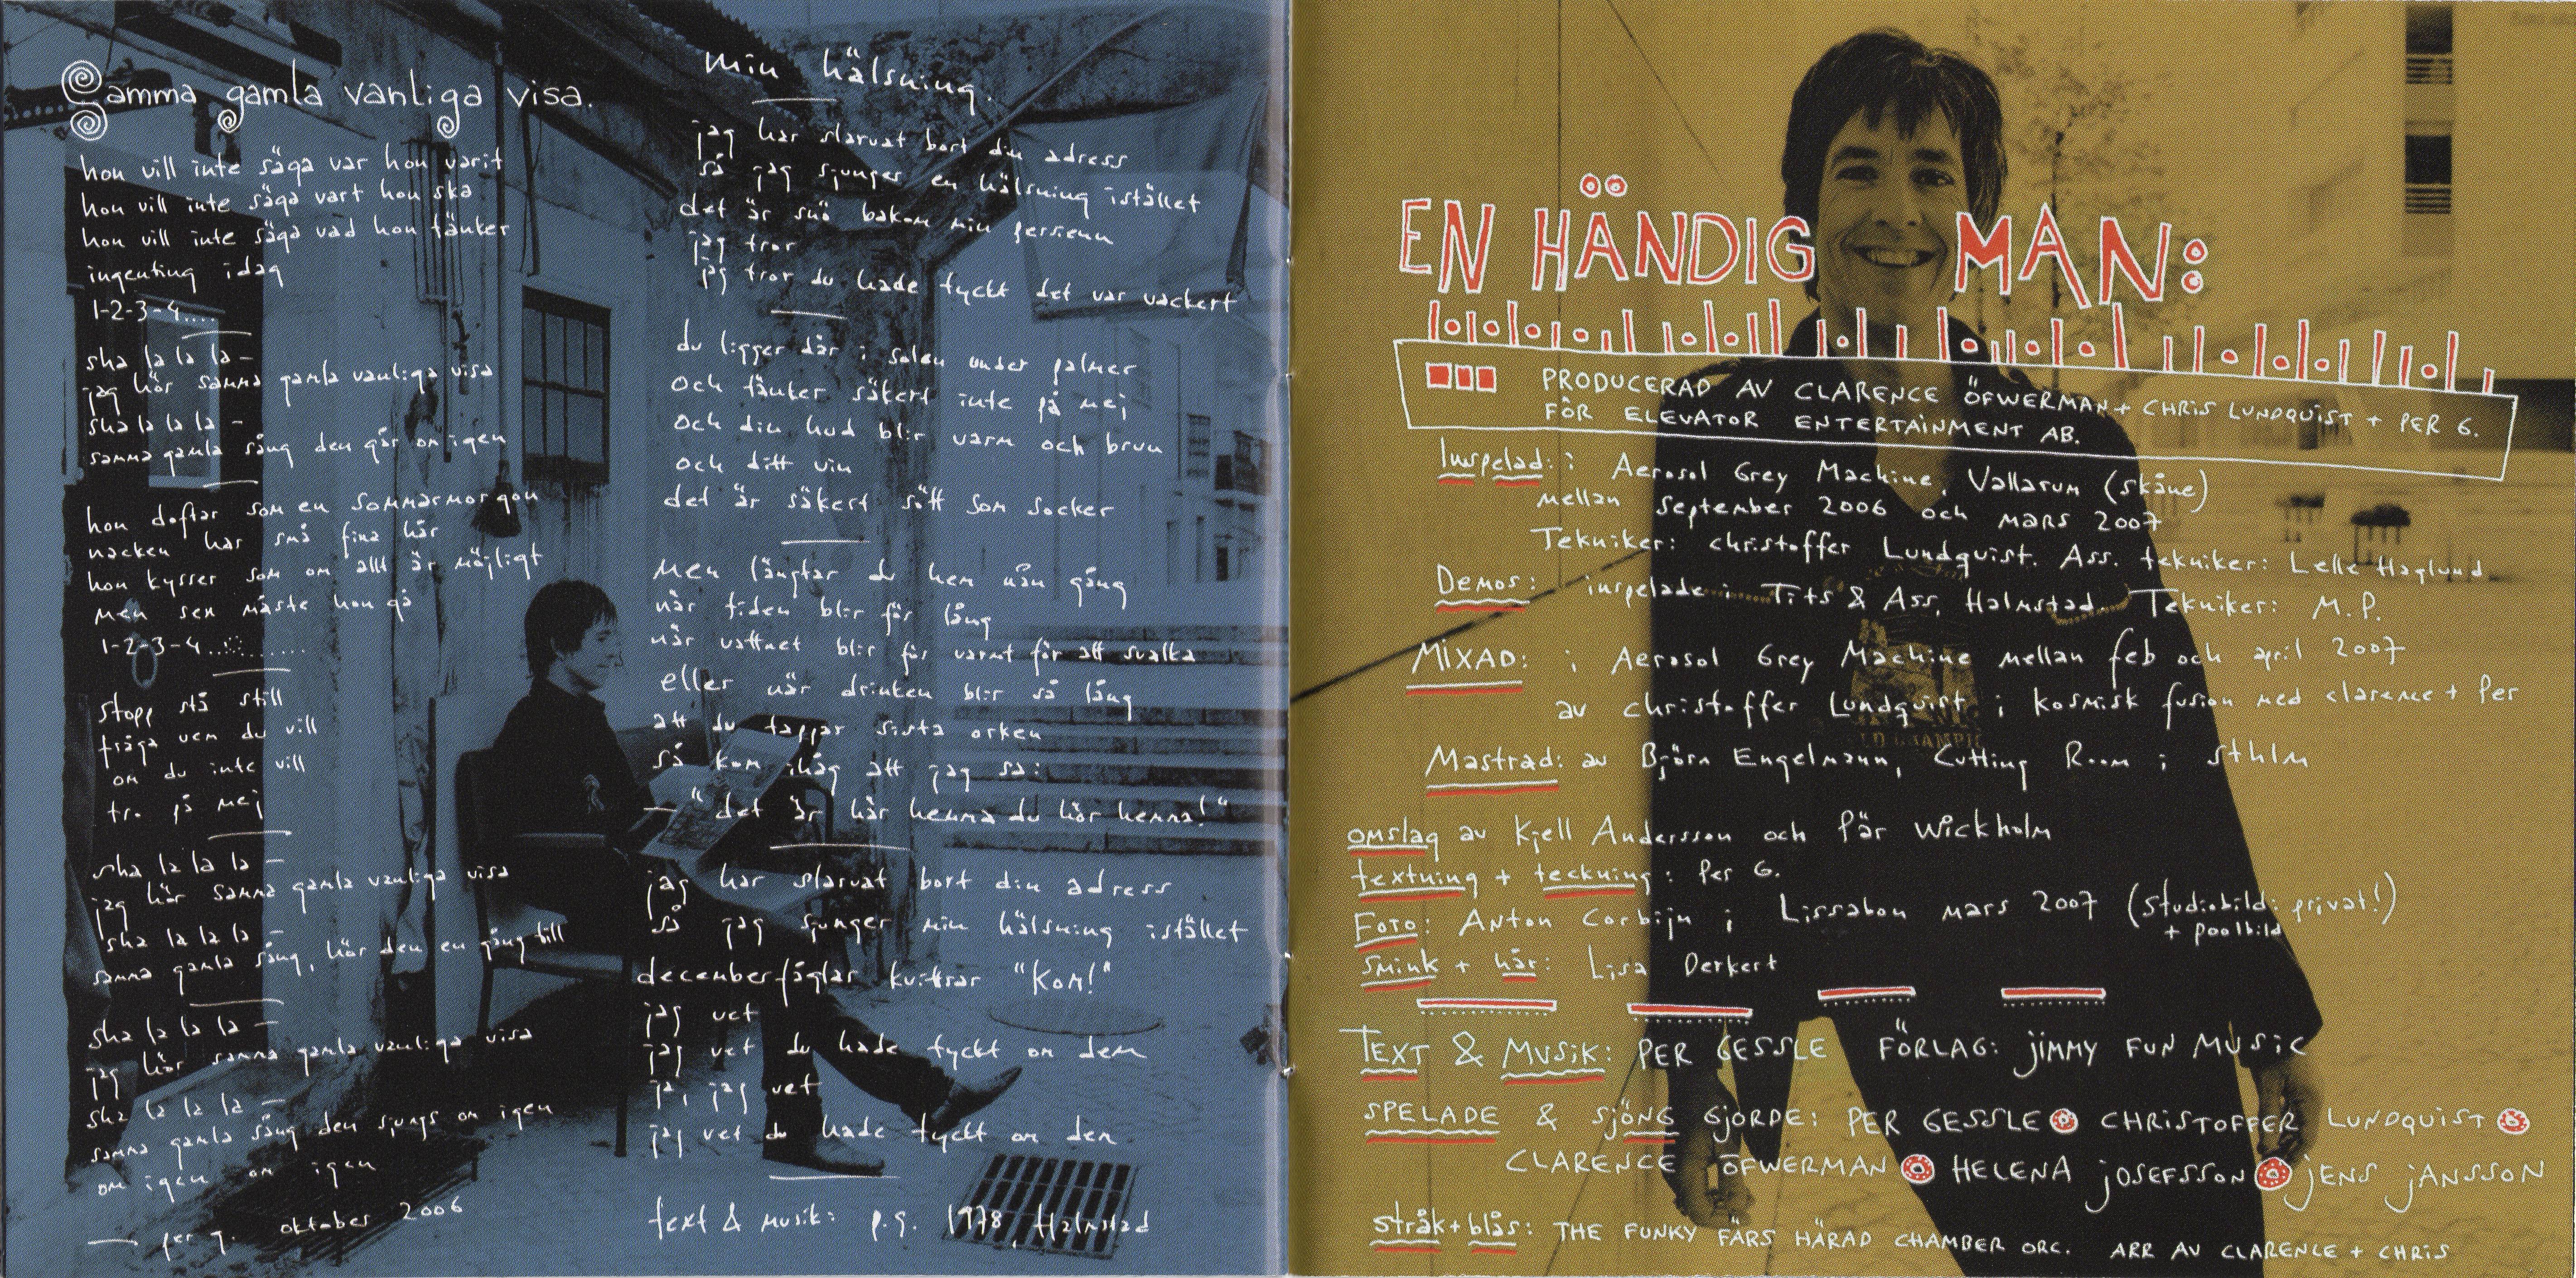 Samma gamla vanliga visa.
hon vill inte säga var hon varit
hon vill inte säga vart hon ska
hon vill inte säga vad hon tänker
ingenting idag
1-2-3-4....
sha la la la –
jag hör samma gamla vanliga visa
sha la la la –
samma gamla sång den går om igen
hon doftar som en sommarmorgon
nacken har små fina hår
hon kysser som om allt är möjligt
men sen måste hon gå
1-2-3-4...........
stopp stå still
fråga vem du vill
om du inte vill
tro på mej
sha la la la –
jag hör samma gamla vanliga visa
sha la la la –
samma gamla sång, hör den en gång till
sha la la la –
jag hör samma gamla vanliga visa
sha la la la –
samma gamla sång den sjungs om igen
om igen om igen
— per g. oktober 2006
min hälsning.
jag har slarvat bort din adress
så jag sjunger en hälsning istället
det är snö bakom min persienn
jag tror
jag tror du hade tyckt det var vackert
du ligger där i solen under palmer
och tänker säkert inte på mej
och din hud blir varm och brun
och ditt vin
det är säkert sött som socker
men längtar du hem nån gång
när tiden blir för lång
när vattnet blir för varmt för att svalka
eller när drinken blir så lång
att du tappar sista orken
så kom ihåg att jag sa:
— "det är här hemma du hör hemma!"
jag har slarvat bort din adress
så jag sjunger min hälsning istället
decemberfåglar kvittrar "kom!"
jag vet
jag vet du hade tyckt om dem
ja, jag vet
jag vet du hade tyckt om den
text & musik: p.g. 1978, Halmstad
EN HÄNDIG MAN:
PRODUCERAD AV CLARENCE ÖFWERMAN + CHRIS LUNDQUIST + PER G.
FÖR ELEVATOR ENTERTAINMENT AB.
Inspelad: i Aerosol Grey Machine, Vallarum (skåne)
mellan september 2006 och mars 2007
Tekniker: christoffer Lundquist. Ass. tekniker: Lelle Haglund
Demos: inspelade i Tits & Ass, Halmstad. Tekniker: M.P.
MIXAD: i Aerosol Grey Machine mellan feb och april 2007
av christoffer Lundquist i kosmisk fusion med clarence + Per
Mastrad: av Björn Engelmann, Cutting Room i sthlm
omslag av Kjell Andersson och Pär Wickholm
textning + teckning: Per G.
Foto: Anton Corbijn i Lissabon mars 2007 (studiobild: privat!)
+ poolbild
smink + hår: Lisa Derkert
TEXT & MUSIK: PER GESSLE FÖRLAG: JIMMY FUN MUSIC
SPELADE & SJÖNG GJORDE: PER GESSLE CHRISTOFFER LUNDQUIST
CLARENCE ÖFWERMAN HELENA JOSEFSSON JENS JANSSON
stråk + blås: THE FUNKY FÄRS HÄRAD CHAMBER ORC. ARR AV CLARENCE + CHRIS